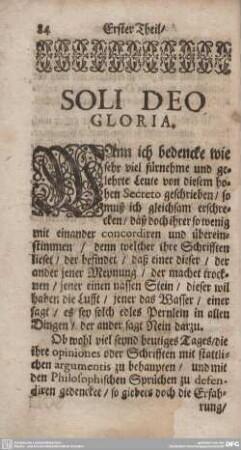 84 Erster Theil/
SOLI DEO
GLORIA.
WAnn ich bedencke wie
sehr viel fürnehme und ge-
lehrte Leute von diesem ho-
hen Secreto geschrieben / so
muß ich gleichsam erschre-
cken / daß doch ihrer so wenig
mit einander concordiren und überein-
stimmen / denn welcher ihre Schrifften
lieset / der befindet / daß einer dieser / der
ander jener Meynung / der machet trock-
nen / jener einen nassen Stein / dieser wil
haben die Lufft / jener das Wasser / einer
sagt / es sey solch edles Pernlein in allen
Dingen / der ander sagt Nein darzu.
Ob wohl viel seynd heutiges Tages / die
ihre opiniones oder Schrifften mit stattli-
chen argumentis zu behaupten / und mit
den Philosophischen Sprüchen zu defen-
diren gedencket / so giebets doch die Erfah-
rung/